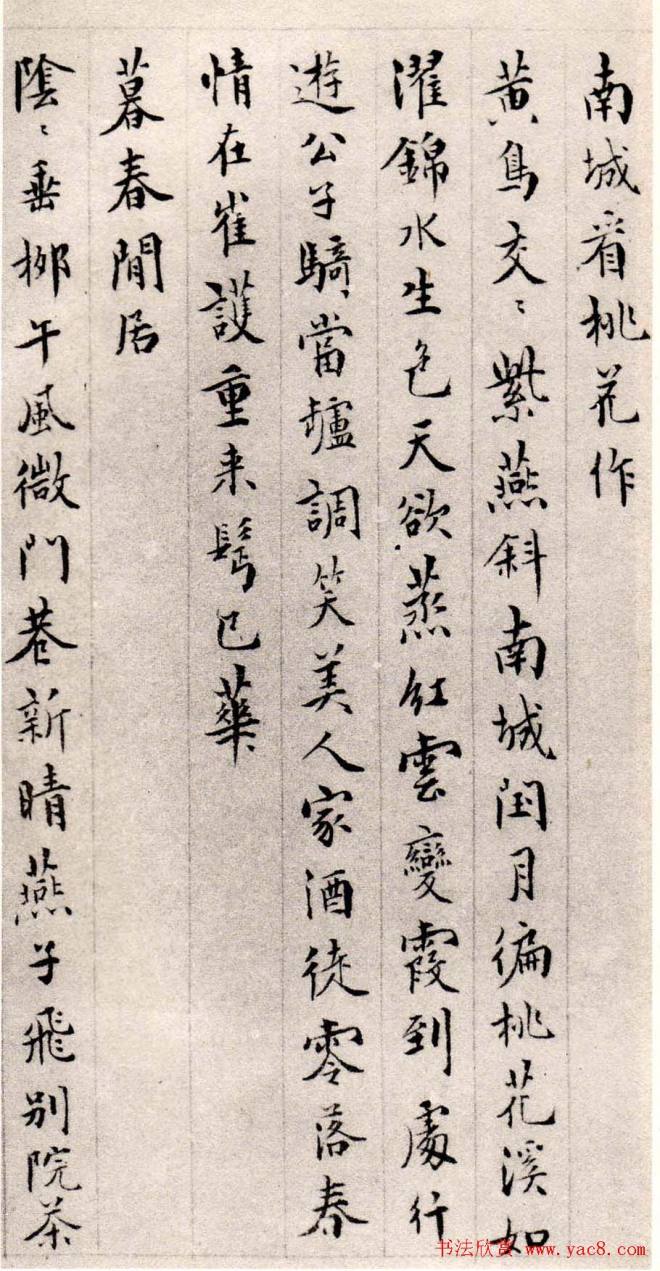 南城看桃花作
黄鳥交〻紫燕斜南城閏月徧桃花溪如
濯錦水生色天欲蒸紅雲變霞到處行
遊公子騎當壚調笑美人家酒徒零落春
情在崔護重来鬓已華
暮春閒居
陰〻垂柳午風微門巷新晴燕子飛别院茶
书法欣赏www.yac8.com